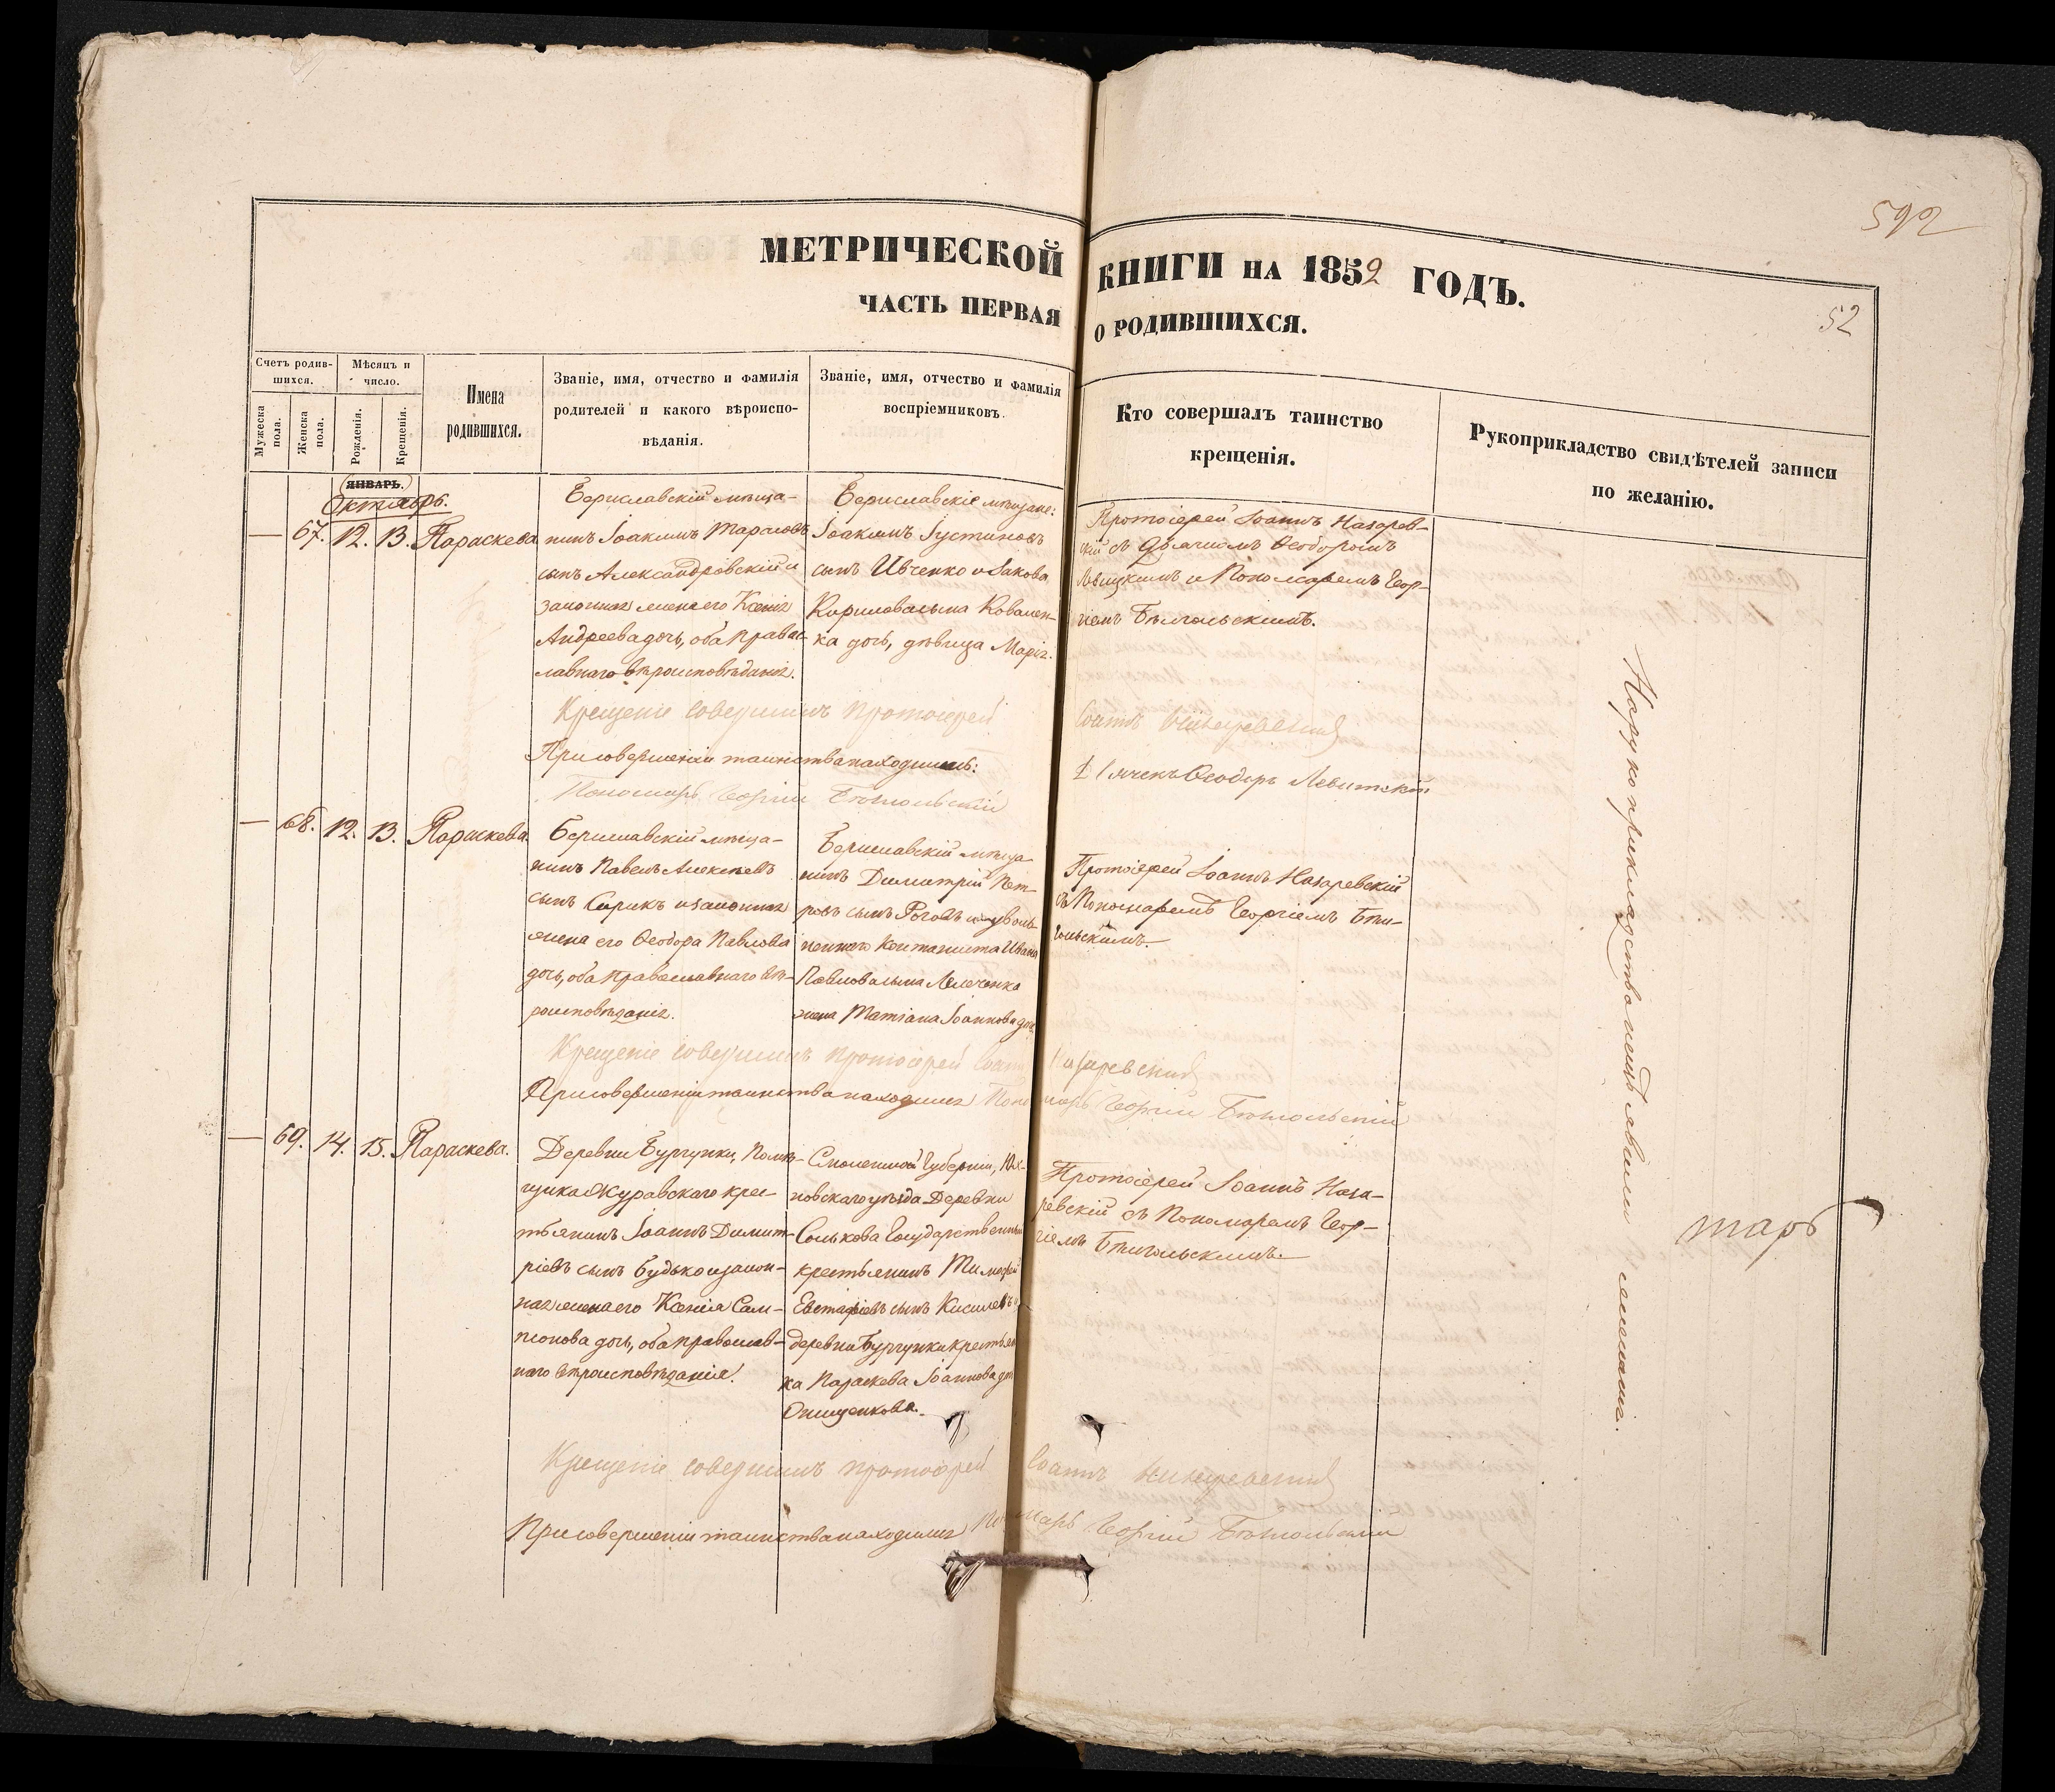 592
МЕТРИЧЕСКОЙ КНИГИ НА 1852 ГОДЪ.
52
ЧАСТЬ ПЕРВАЯ О РОДИВШИХСЯ.
Счетъ родив-
шихся.
Мужеска пола.
Женска пола.
Мѣсяцъ и
число.
Рожденія.
Крещенія.
Имена
родившихся.
Званіе, имя, отчество и фамилія
родителей и какого вѣроиспо-
вѣданія.
Званіе, имя, отчество и фамилія
воспріемниковъ.
Кто совершалъ таинство
крещенія.
Рукоприкладство свидѣтелей записи
по желанію.
ЯНВАРЬ.
Октябрь.
— 67. 12. 13. Параскева
Бериславскій мѣща-
нинъ Іоакимъ Тарасовъ
сынъ Александровскій и
законная жена его Ксенія
Андреева дочь, оба право-
лавнаго вѣроисповѣданія.
Бериславскіе мѣщане:
Іоакимъ Іустиновъ
сынъ Ивченко и Іакова
Кирилова сына Ковален-
ка дочь, дѣвица Марія.
Протоіерей Іоаннъ Назарев-
скій съ Дьячкомъ Ѳеодоромъ
Левицкимъ и Пономаремъ Геор-
гіемъ
Крещеніе совершилъ протоіерей Іоаннъ Назаревскій
При совершеніи таинства находились: Дьячекъ Ѳеодоръ Левитскій
Пономарь Георгій
— 68. 12. 13. Параскева.
Бериславскій мѣща-
нинъ Павелъ Алексѣевъ
сынъ Сирикъ и законная
жена его Ѳеодора Павлова
дочь, оба православнаго вѣ-
роисповѣданія.
Бериславскій мѣща-
нинъ Димитрій Пет-
ровъ сынъ Роговъ и уволь-
неннаго Ивана
Павлова сына
жена Татіана Іоаннова доч.
Протоіерей Іоаннъ Назаревскій
съ Пономаремъ Георгіемъ
Крещеніе совершилъ протоіерей Іоаннъ Назаревскій
При совершеніи таинства находился Пономарь Георгій
— 69. 14. 15. Параскева.
Деревни Бургунки, Помѣ-
щика Журавскаго крес-
тьянинъ Іоаннъ Димит-
ріевъ сынъ Будько и закон-
ная жена его Ксенія Сам-
псонова дочь, оба православ-
наго вѣроисповѣданія.
Смоленской Губерніи, Юх-
новскаго уѣзда Деревни
Солькова Государственный
крестьянинъ Тимофей
Евстафіевъ сынъ Киселевъ и
деревни Бургунки крестьян
ка Параскева Іоаннова доч
Онищенкова.
Протоіерей Іоаннъ Наза-
ревскій съ Пономаремъ Геор-
гіемъ
Крещеніе совершилъ протоіерей Іоаннъ Назаревскій
При совершеніи таинства находился Пономарь Георгій
На рукоприкладство неизъявили желанія.
тарь